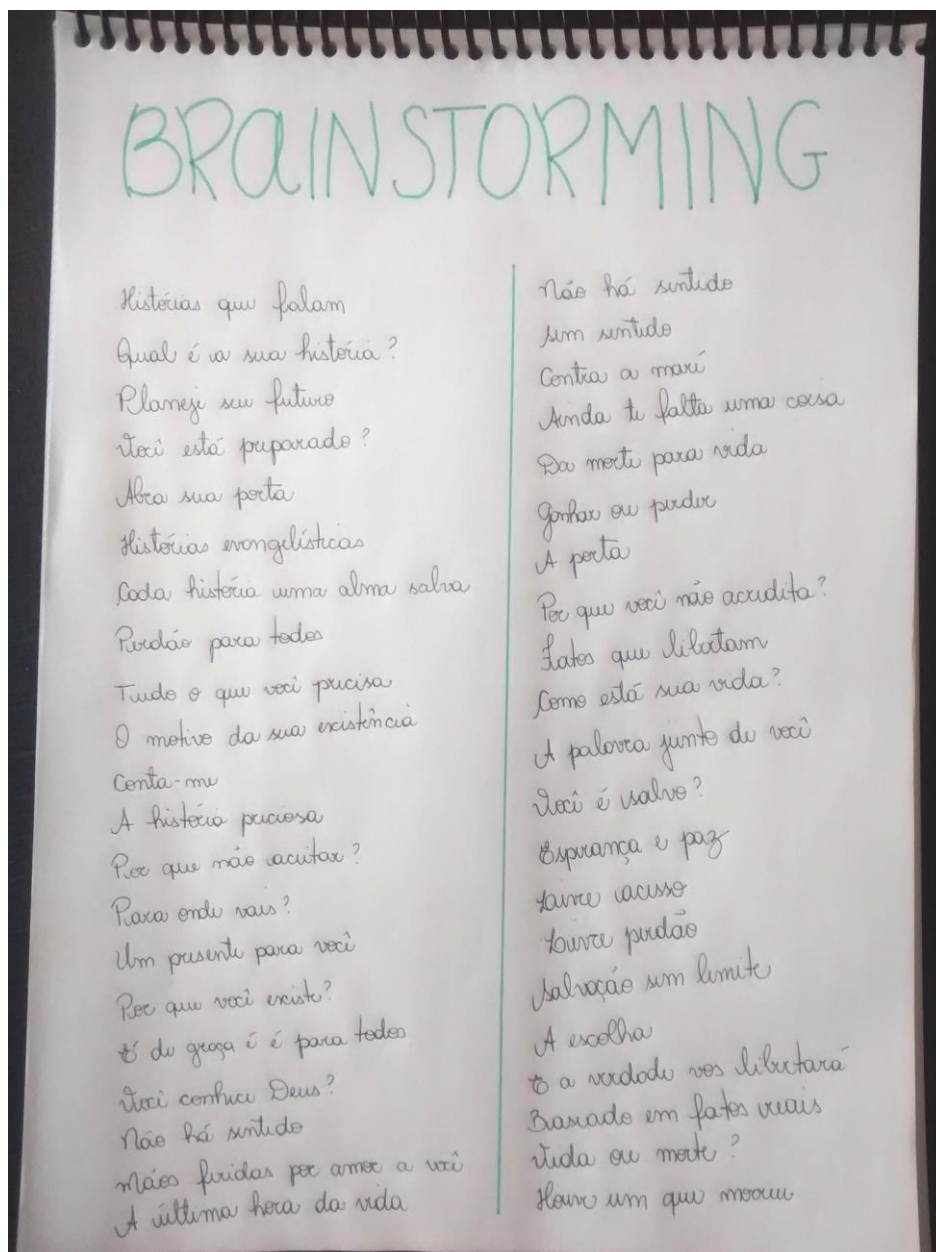 BRAINSTORMING
Histórias que falam
Qual é a sua história?
Planeje seu futuro
Você está preparado?
Abra sua porta
Histórias evangelísticas
Cada história uma alma salva
Perdão para todos
Tudo o que você precisa
O motivo da sua existência
Conta-me
A história preciosa
Por que não aceitar?
Para onde vais?
Um presente para você
Por que você existe?
É de graça é é para todos
Você conhece Deus?
Não há sentido
Mãos feridas por amor a você
A última hora da vida
Não há sentido
sem sentido
Contra a maré
Ainda te falta uma coisa
Da morte para vida
Ganhar ou perder
A porta
Por que você não acredita?
Fatos que libertam
Como está sua vida?
A palavra junto de você
Você é salvo?
Esperança e paz
Livre acesso
Livre perdão
Salvação sem limite
A escolha
E a verdade vos libertará
Baseado em fatos reais
Vida ou morte?
Houve um que morreu